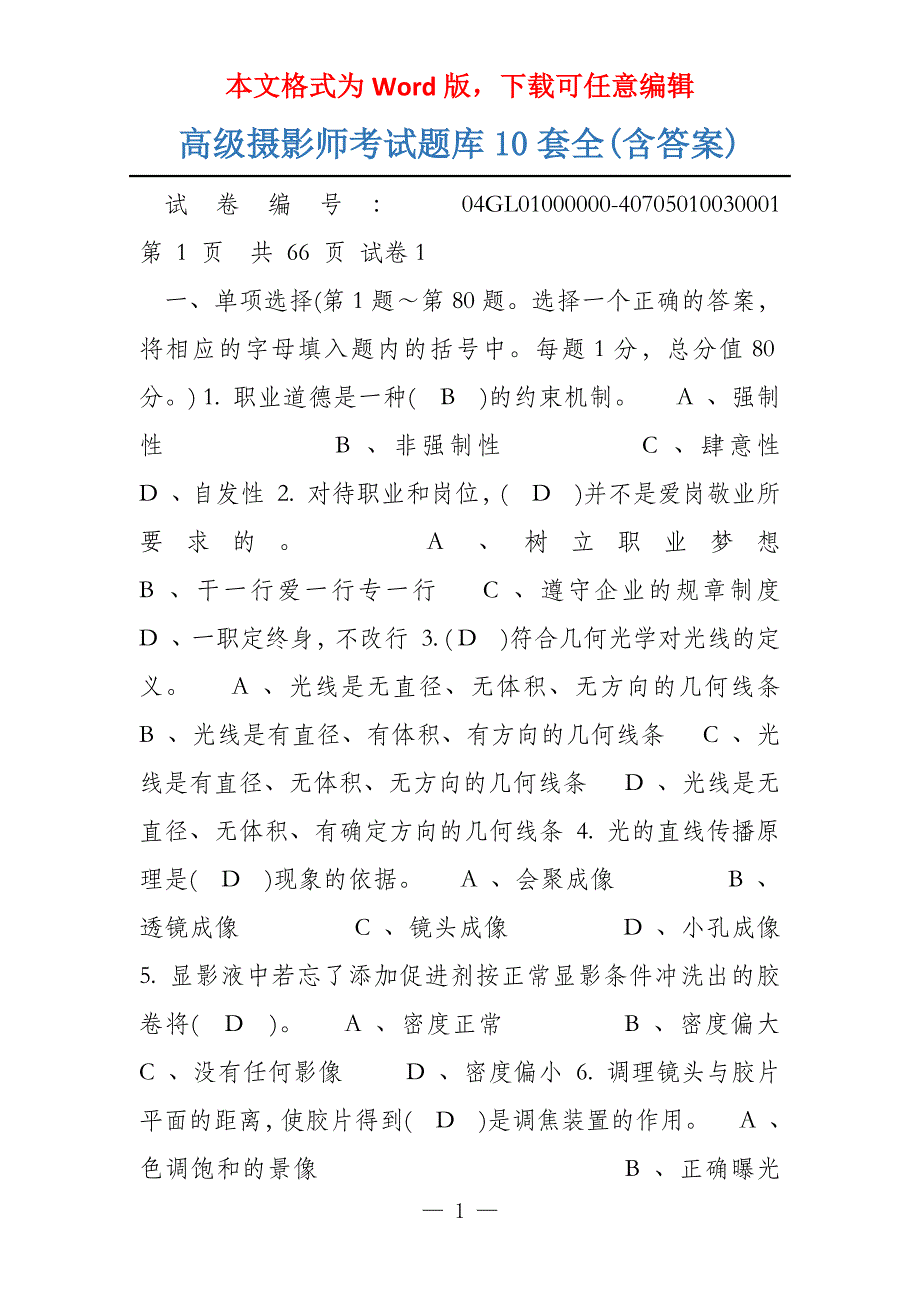 本文格式为 Word 版，下载可任意编辑
高级摄影师考试题库 10 套全(含答案)
试 卷 编 号 ： 04GL01000000-40705010030001
第 1 页 共 66 页 试卷 1
一、单项选择(第 1 题～第 80 题。选择一个正确的答案，
将相应的字母填入题内的括号中。每题 1 分，总分值 80
分。) 1. 职业道德是一种( B )的约束机制。 A 、强制
性 B 、非强制性 C 、肆意性
D 、自发性 2. 对待职业和岗位，( D )并不是爱岗敬业所
要求的。 A 、树立职业梦想
B 、干一行爱一行专一行 C 、遵守企业的规章制度
D 、一职定终身，不改行 3. ( D )符合几何光学对光线的定
义。 A 、光线是无直径、无体积、无方向的几何线条
B 、光线是有直径、有体积、有方向的几何线条 C 、光
线是有直径、无体积、无方向的几何线条 D 、光线是无
直径、无体积、有确定方向的几何线条 4. 光的直线传播原
理是( D )现象的依据。 A 、会聚成像 B 、
透镜成像 C 、镜头成像 D 、小孔成像
5. 显影液中若忘了添加促进剂按正常显影条件冲洗出的胶
卷将( D )。 A 、密度正常 B 、密度偏大
C 、没有任何影像 D 、密度偏小 6. 调理镜头与胶片
平面的距离，使胶片得到( D )是调焦装置的作用。 A 、
色调饱和的景像 B 、正确曝光
— 1 —